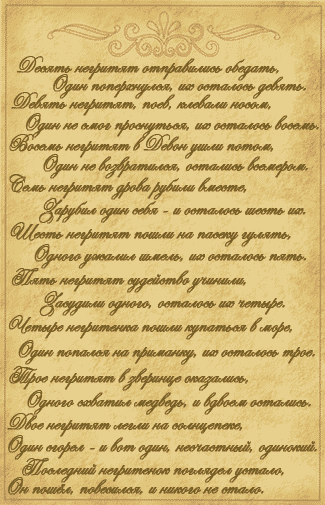 Десять негритят отправились обедать,
Один поперхнулся, их осталось девять.
Девять негритят, поев, клевали носом,
Один не смог проснуться, их осталось восемь.
Восемь негритят в Девон ушли потом,
Один не возвратился, остались всемером.
Семь негритят дрова рубили вместе,
Зарубил один себя - и осталось шесть их.
Шесть негритят пошли на пасеку гулять,
Одного ужалил шмель, их осталось пять.
Пять негритят судейство учинили,
Засудили одного, осталось их четыре.
Четыре негритенка пошли купаться в море,
Один попался на приманку, их осталось трое.
Трое негритят в зверинце оказались,
Одного схватил медведь, и вдвоем остались.
Двое негритят легли на солнцепеке,
Один сгорел - и вот один, несчастный, одинокий.
Последний негритенок поглядел устало,
Он пошёл, повесился, и никого не стало.